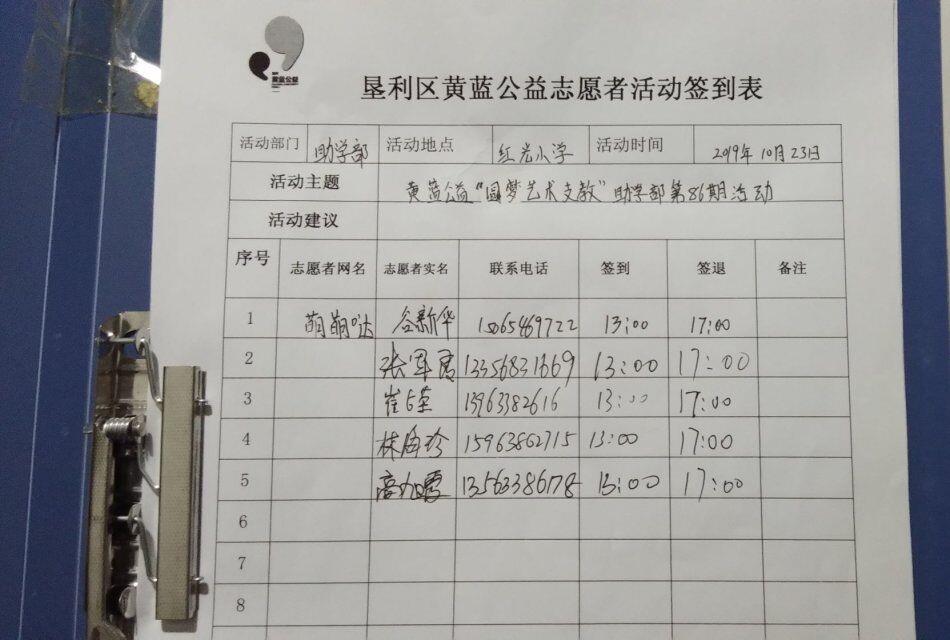 黄蓝公益
垦利区黄蓝公益志愿者活动签到表
活动部门 助学部 活动地点 红光小学 活动时间 2019年10月23日
活动主题 黄蓝公益“圆梦艺术支教”助学部第86期活动
活动建议
序号 志愿者网名 志愿者实名 联系电话 签到 签退 备注
1 萌萌哒 谷新华 15065469722 13:00 17:00
2 张军 13356831669 13:00 17:00
3 崔 13963382616 13:00 17:00
4 林 珍 15963862715 13:00 17:00
5 高 霞 13563386178 13:00 17:00
6
7
8